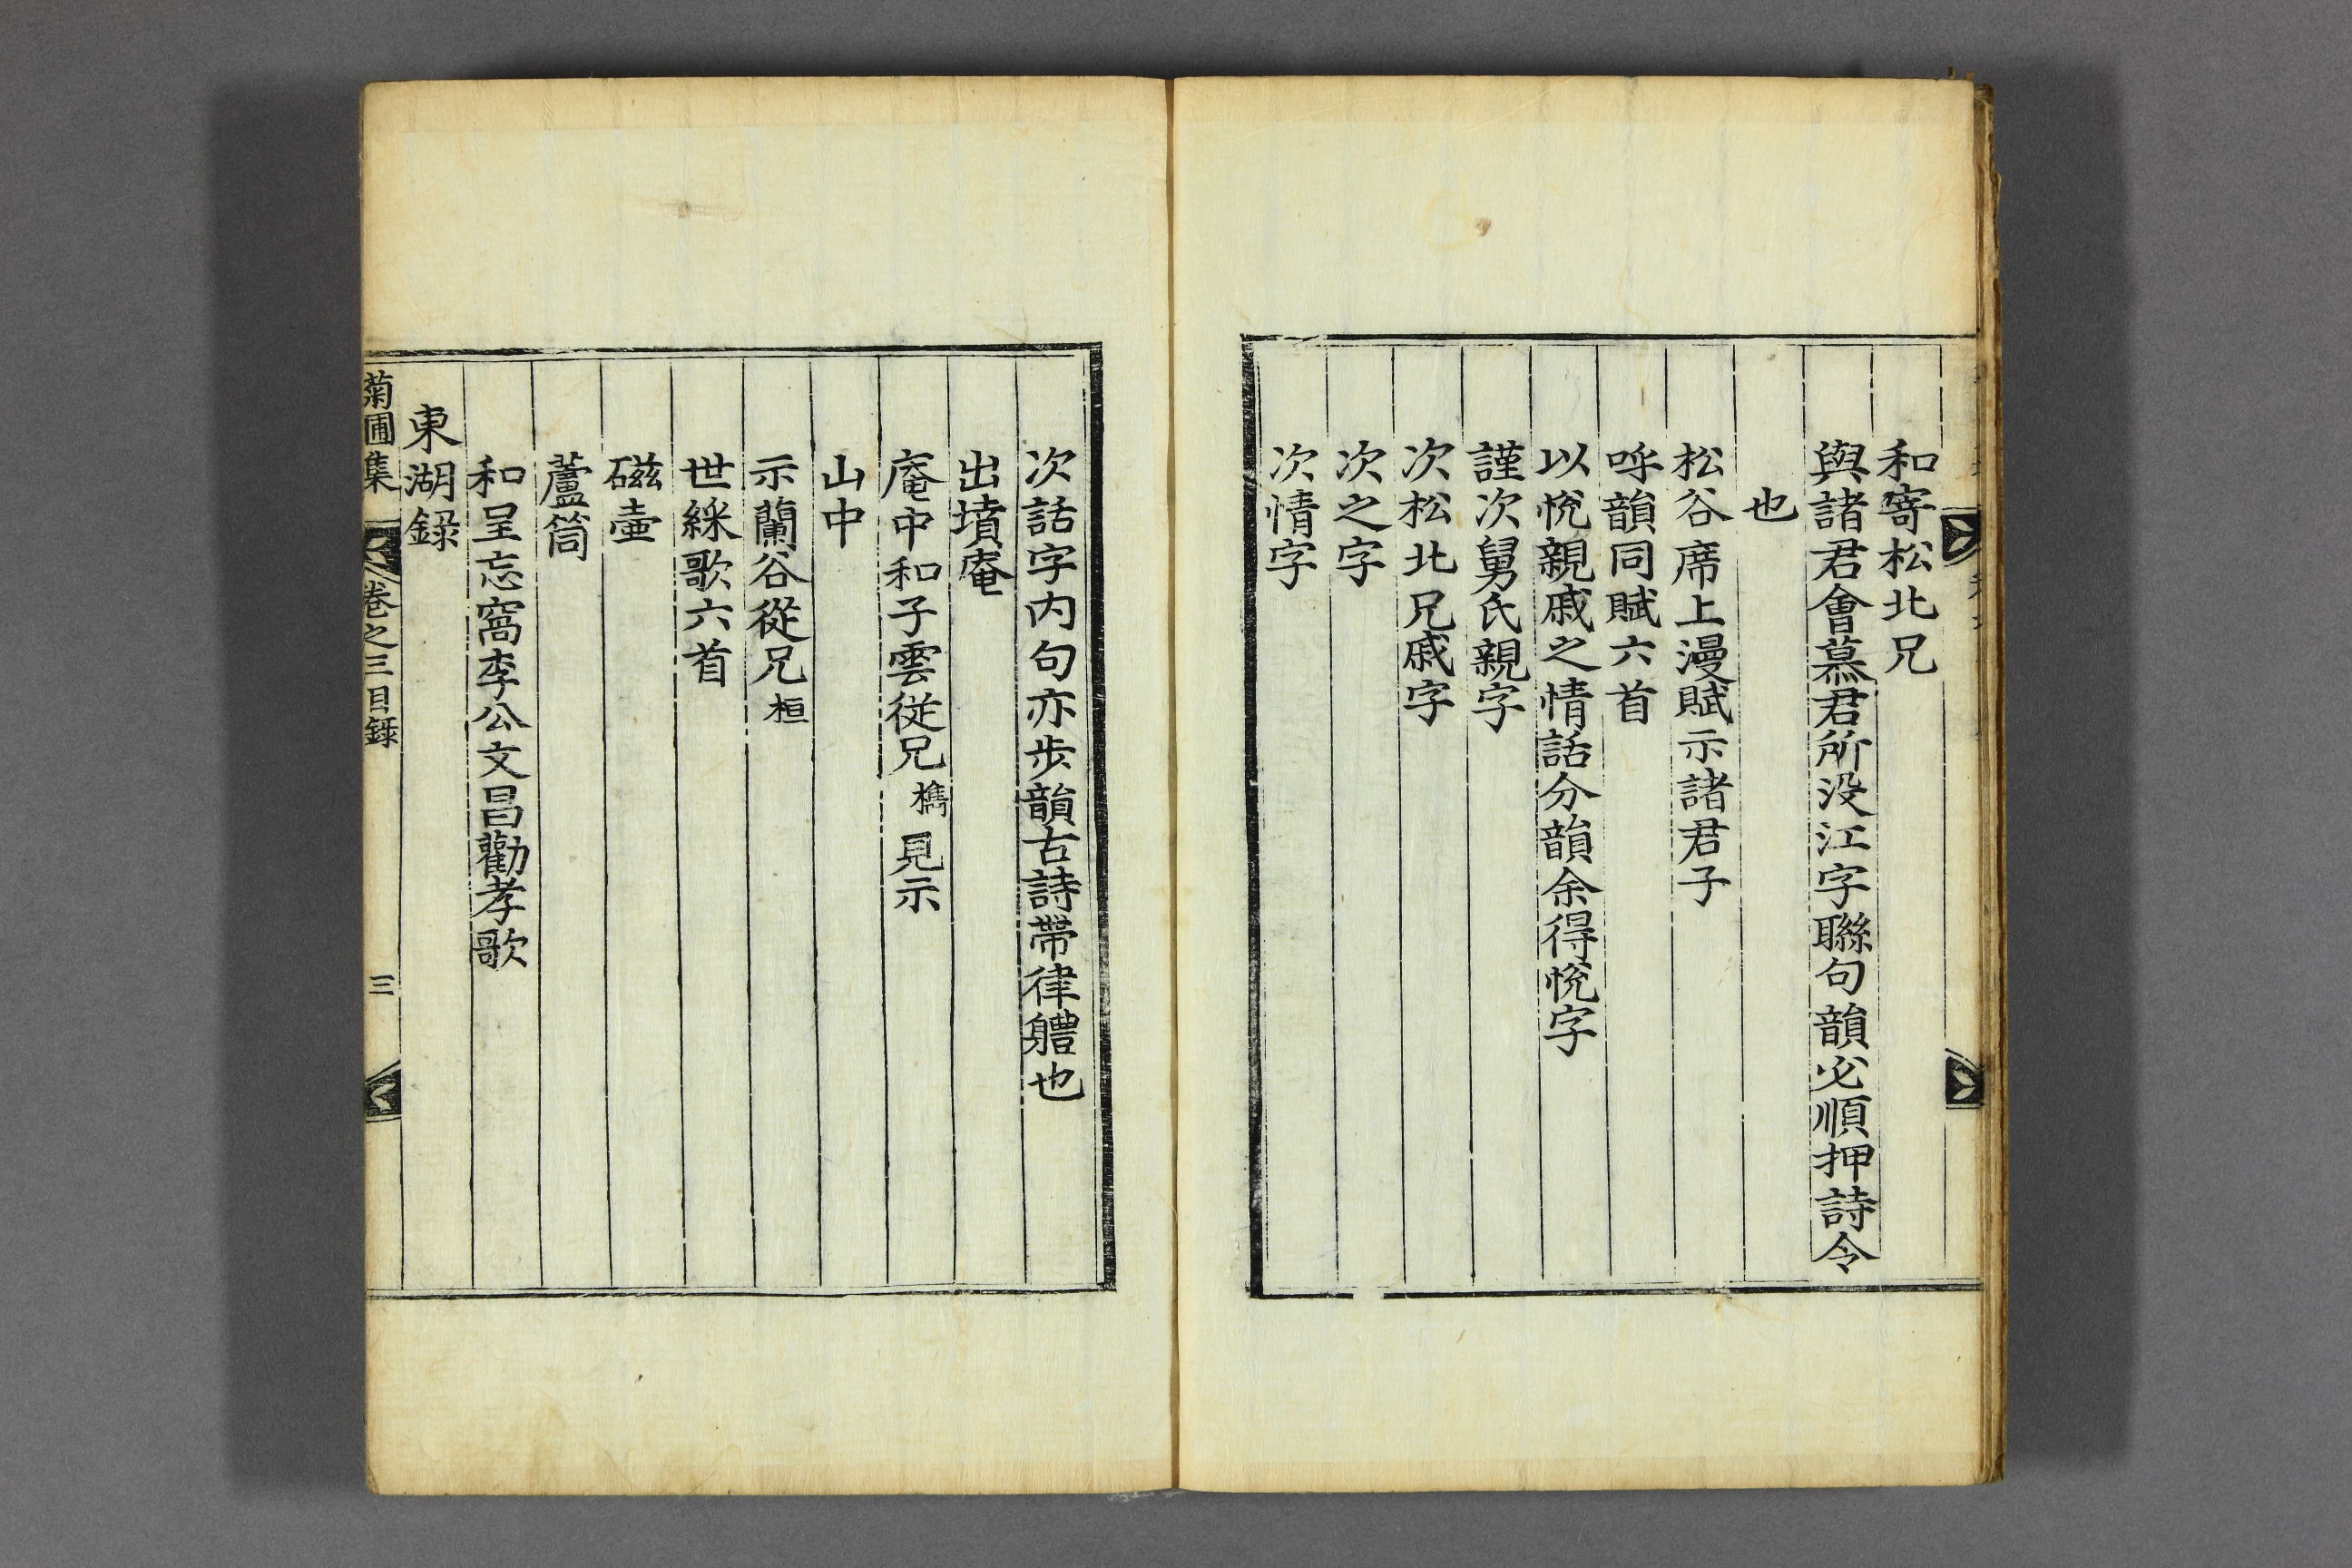 和寄松北兄
與諸君會慕君所没江字聯句韻必順押詩令
也
松谷席上漫賦示諸君子
呼韻同賦六首
以悅親戚之情話分韻余得悅字
謹次舅氏親字
次松北兄戚字
次之字
次情字
次話字内句亦步韻古詩帶律軆也
出墳庵
庵中和子雲從兄檇見示
山中
示蘭谷從兄桓
世綵歌六首
磁壷
蘆筒
和呈忘窩李公文昌勸孝歌
東湖録
菊圃集 卷之三目録 三